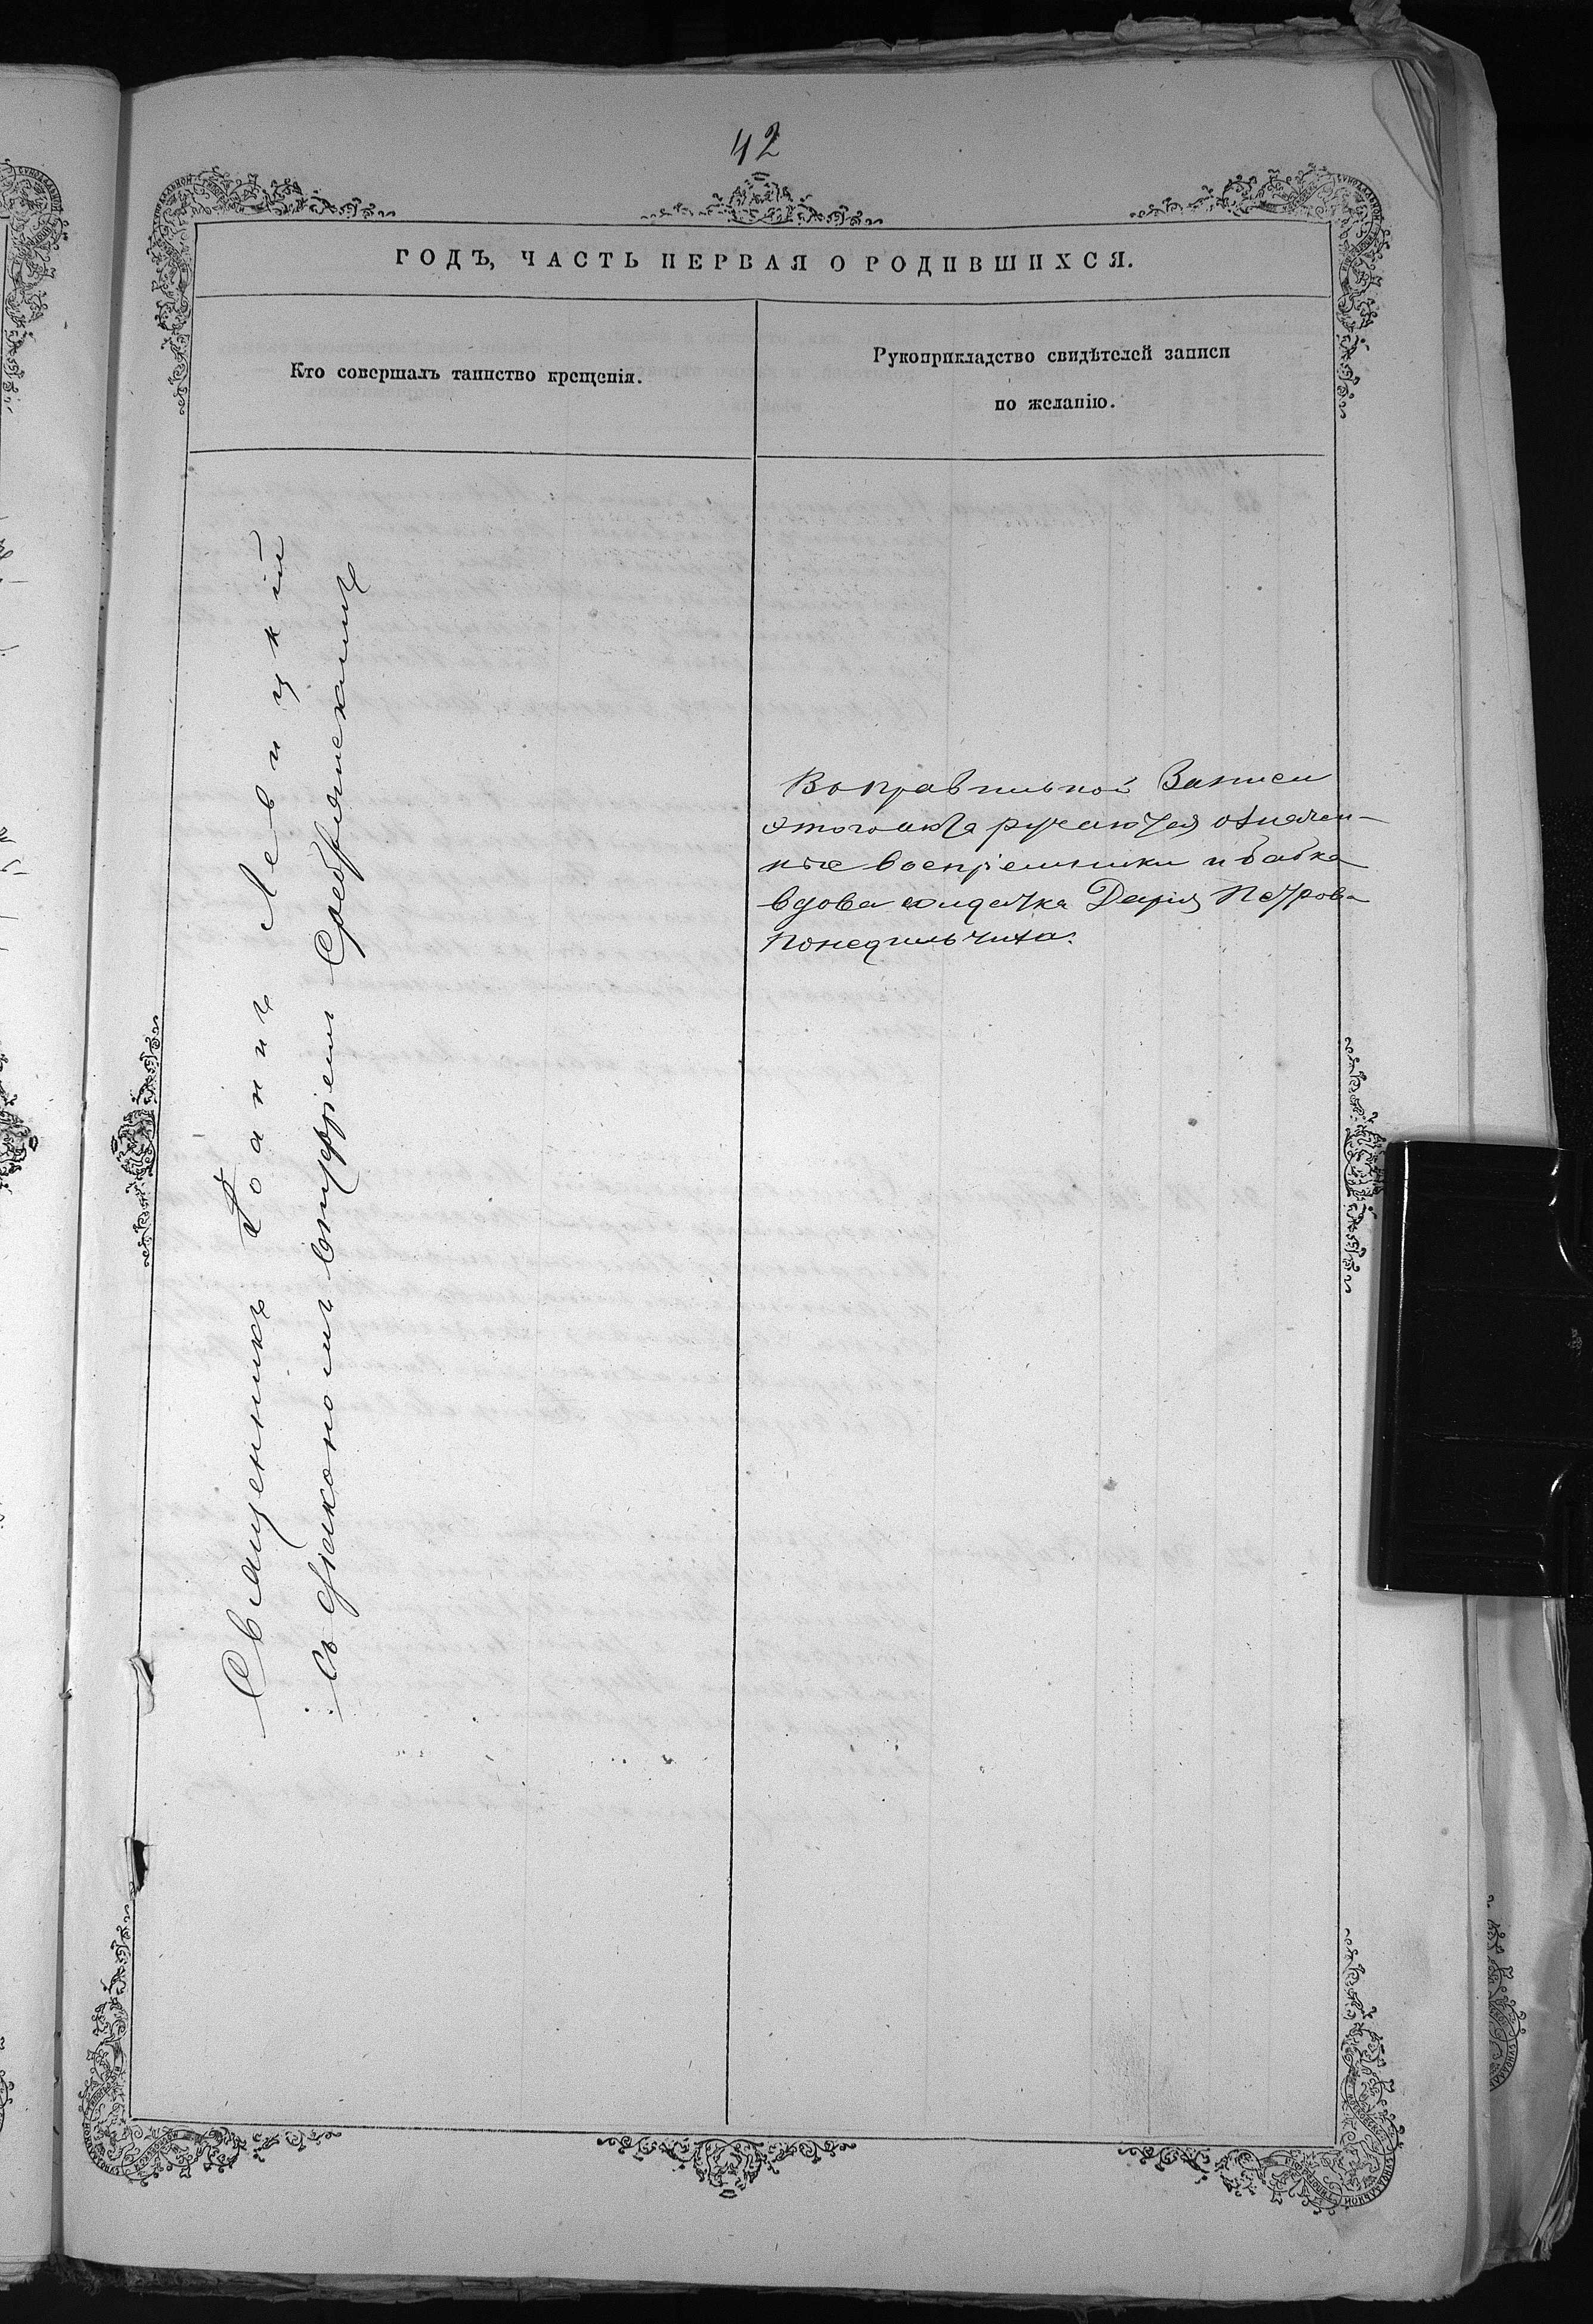 42
ГОДЪ, ЧАСТЬ ПЕРВАЯ О РОДИВШИХСЯ.
Кто совершалъ таинство крещенія.
Рукоприкладство свидѣтелей записи
по желанію.
Священникъ Іоаннъ Левицкій
Съ діакономъ Онуфріемъ Сребрянскимъ
Въ правильной Записи
этого акта ручаются означен-
ные воспріемники и бабка
вдова солдатка Дарія Петрова
Понедильчиха.